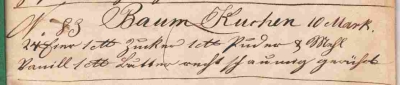 No. 83 Baum Kuchen 10 Mark.
24 Eier 1 ℔ Zucker 1 ℔ Puder & Mehl
Vanill 1 ℔ Butter recht schaumig gerührt